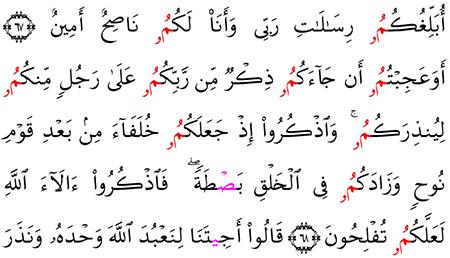 أُبَلِّغُكُمُۥ رِسَٰلَٰتِ رَبِّى وَأَنَا۠ لَكُمُۥ نَاصِحٌ أَمِينٌ ٦٧
أَوَعَجِبْتُمُۥ أَن جَآءَكُمُۥ ذِكْرٌ مِّن رَّبِّكُمُۥ عَلَىٰ رَجُلٍ مِّنكُمُۥ
لِيُنذِرَكُمُۥ ۚ وَاذْكُرُوا۟ إِذْ جَعَلَكُمُۥ خُلَفَآءَ مِنۢ بَعْدِ قَوْمِ
نُوحٍ وَزَادَكُمُۥ فِى الْخَلْقِ بَصْطَةً ۖ فَاذْكُرُوا۟ ءَالَآءَ اللَّهِ
لَعَلَّكُمُۥ تُفْلِحُونَ ٦٨ قَالُوا۟ أَجِيتَنَا لِنَعْبُدَ اللَّهَ وَحْدَهُۥ وَنَذَرَ